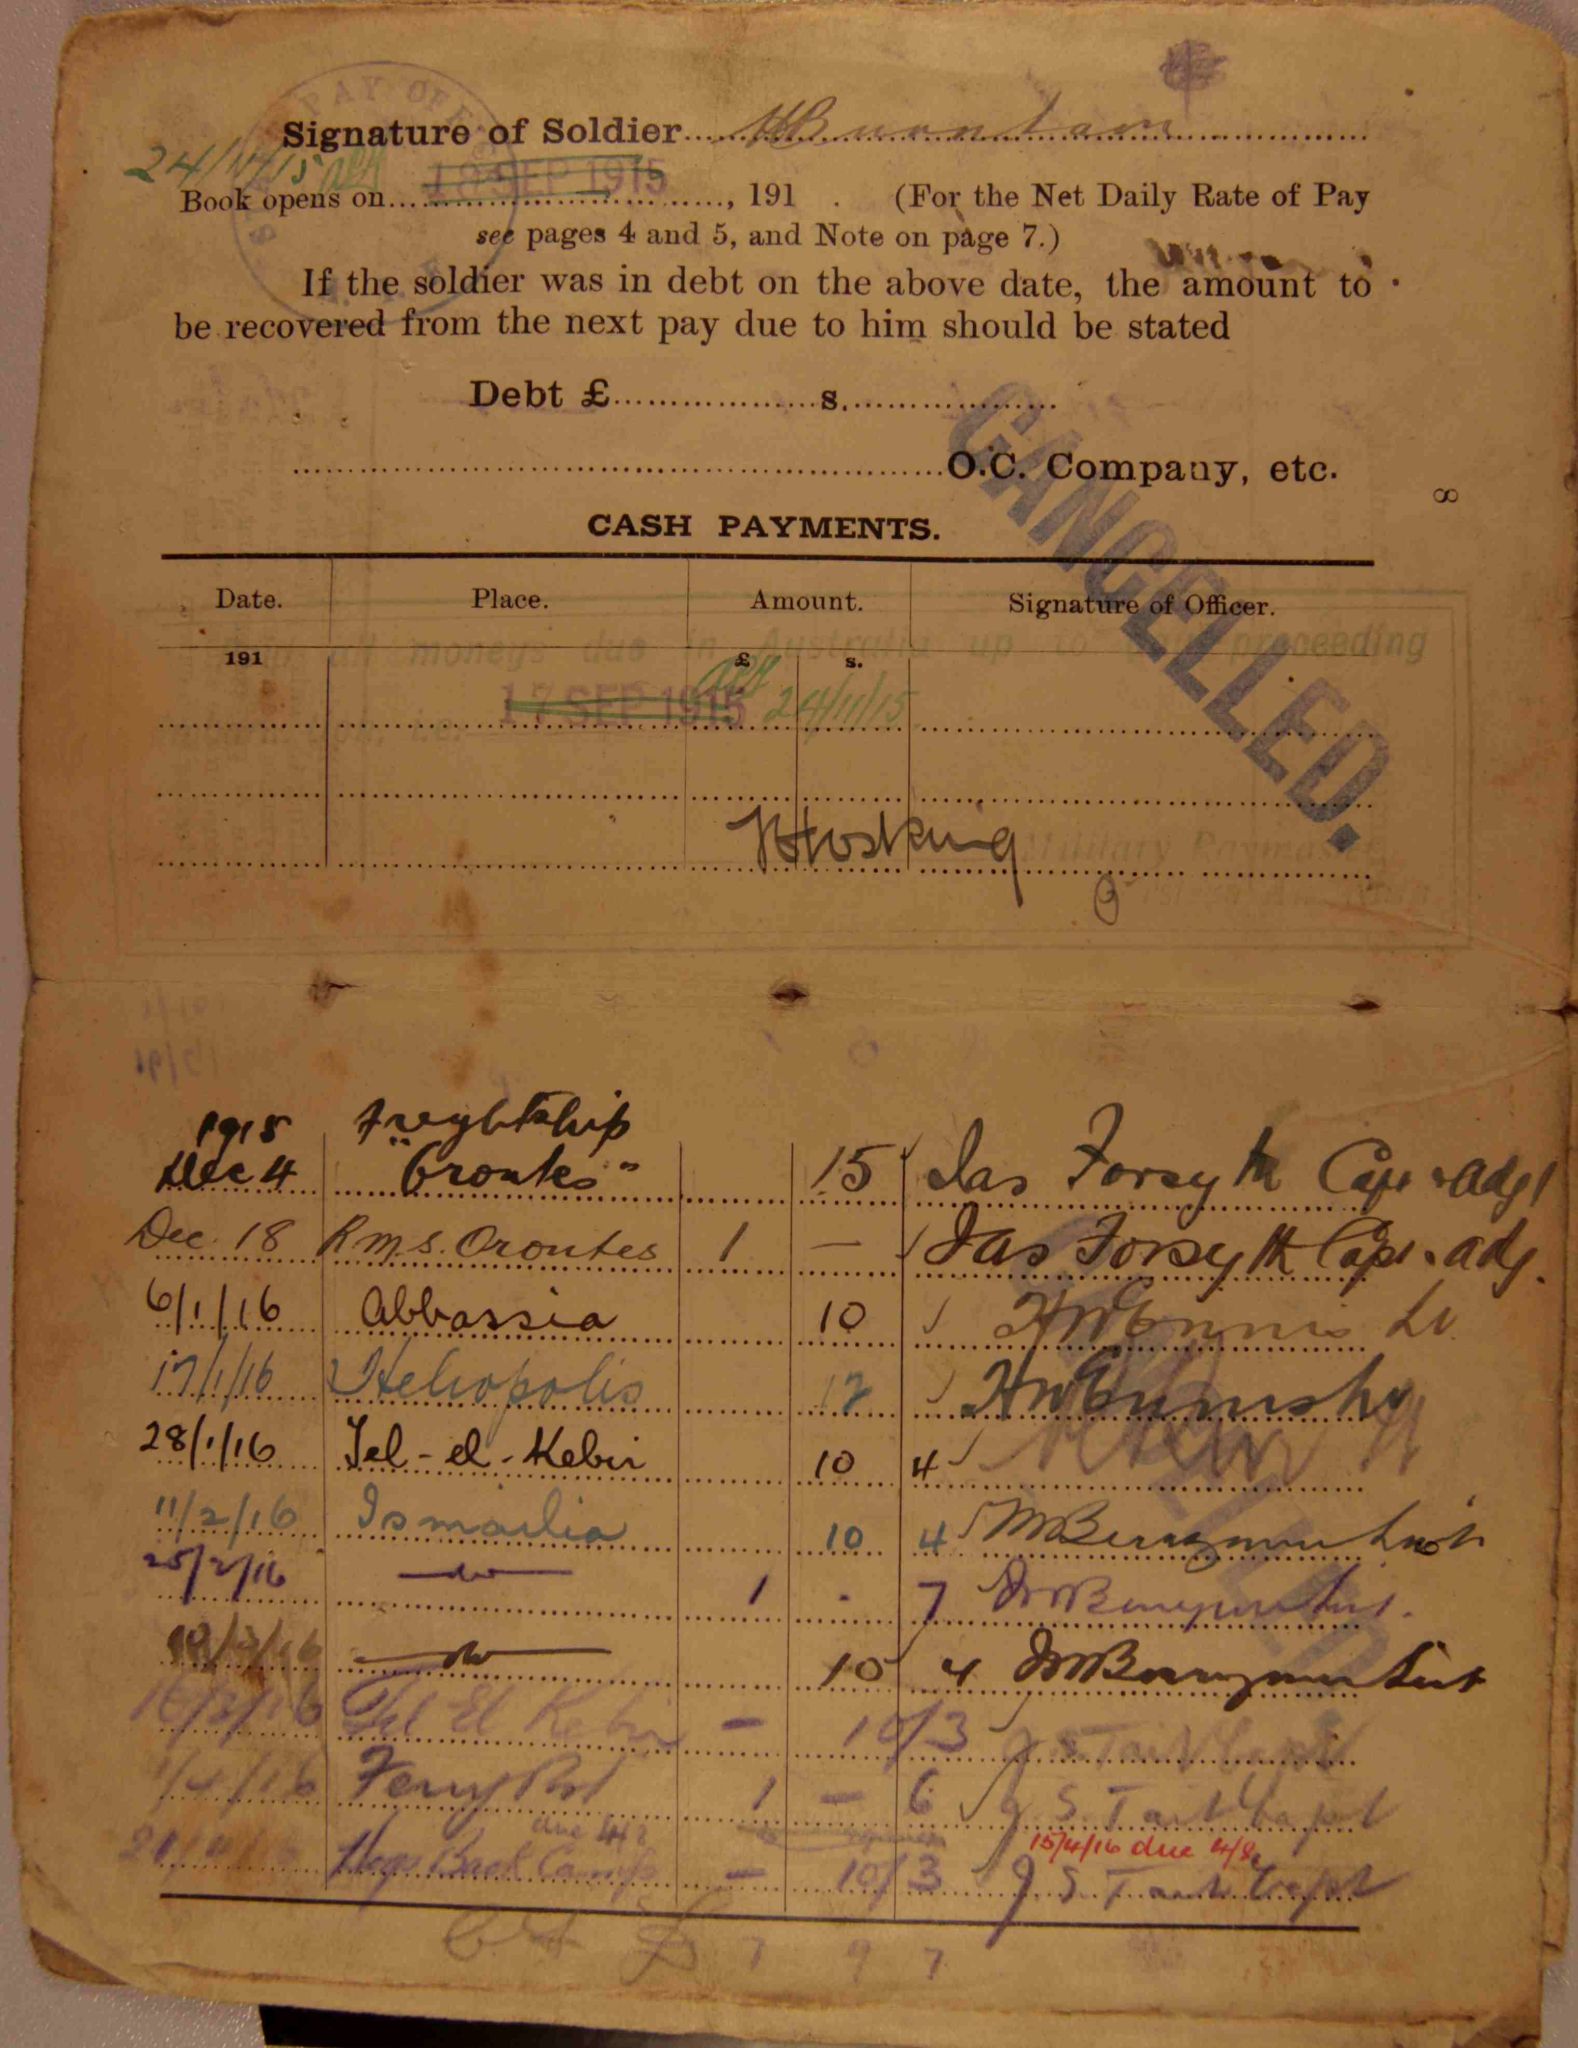 PAY OFF
Signature of Soldier
24/11/15
Book opens on 18 SEP 1915, 191 . (For the Net Daily Rate of Pay
see pages 4 and 5, and Note on page 7.)
If the soldier was in debt on the above date, the amount to
be recovered from the next pay due to him should be stated
Debt £ s.
O.C. Company, etc.
8
CANCELLED.
CASH PAYMENTS.
Date. Place. Amount. Signature of Officer.
all moneys due in Australia up to proceeding
191 £ s.
17 SEP 1915 24/11/15
Hosking
Military Paymaster
1915 Freightship
Dec 4 "Orontes" 15 Jas Forsyth Capt & Adjt
Dec. 18 R.M.S. Orontes 1 — Jas Forsyth Capt & Adj.
6/1/16 Abbassia 10 HW Ennis Lt.
17/1/16 Heliopolis 12 HW Ennis Lt
28/1/16 Tel-el-Kebir 10 4
11/2/16 Ismailia 10 4 Berryman Lieut
25/2/16 —do— 1 - 7 Berryman Lieut.
10/3/16 —do— 10 4 Berryman Lieut
16/3/16 Tel El Kebir — 10/3 J S Tait Capt
1/4/16 Ferry Post 1 — 6 J. S. Tait Capt
due 4/8 15/4/16 due 4/8
Hogs Back Camp — 10/3 J S Tait Capt
7 9 7